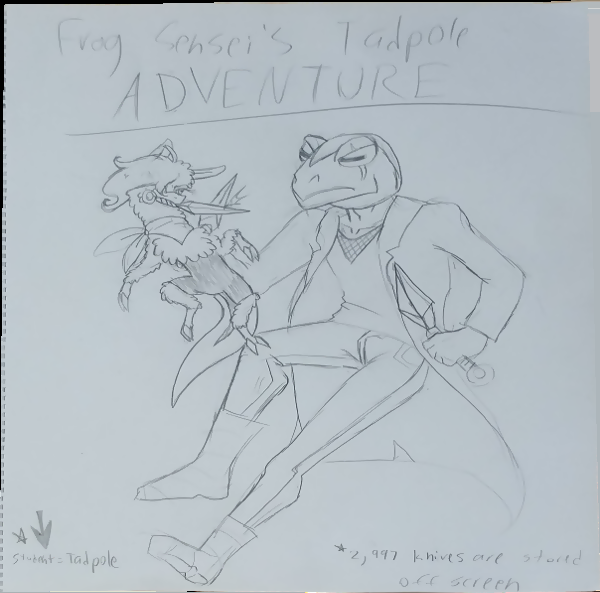 Frog Sensei's Tadpole
ADVENTURE
Student = Tadpole
*2,997 knives are stored
off screen